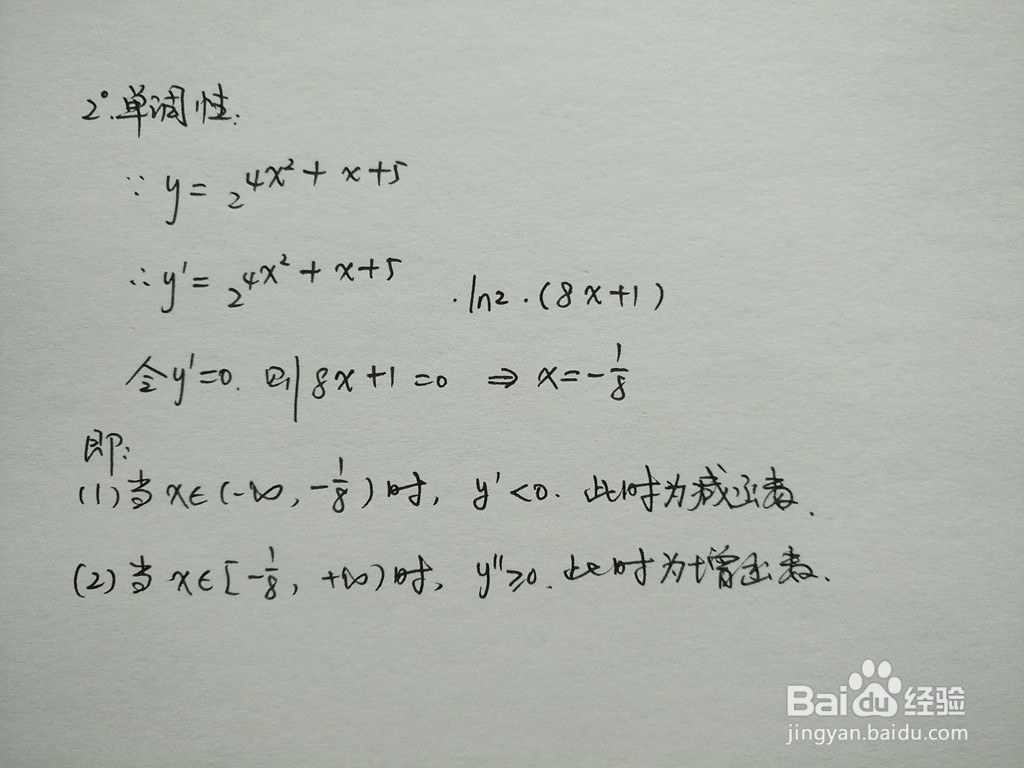 2°.单调性:
∵ y = 2^{4x²+x+5}
∴ y' = 2^{4x²+x+5} · ln2 · (8x+1)
令y'=0. 则 8x+1=0 ⇒ x=-1/8
即:
(1)当 x∈(-∞, -1/8)时, y'<0. 此时为减函数.
(2)当 x∈[-1/8, +∞)时, y''≥0. 此时为增函数.
Baidu经验
jingyan.baidu.com